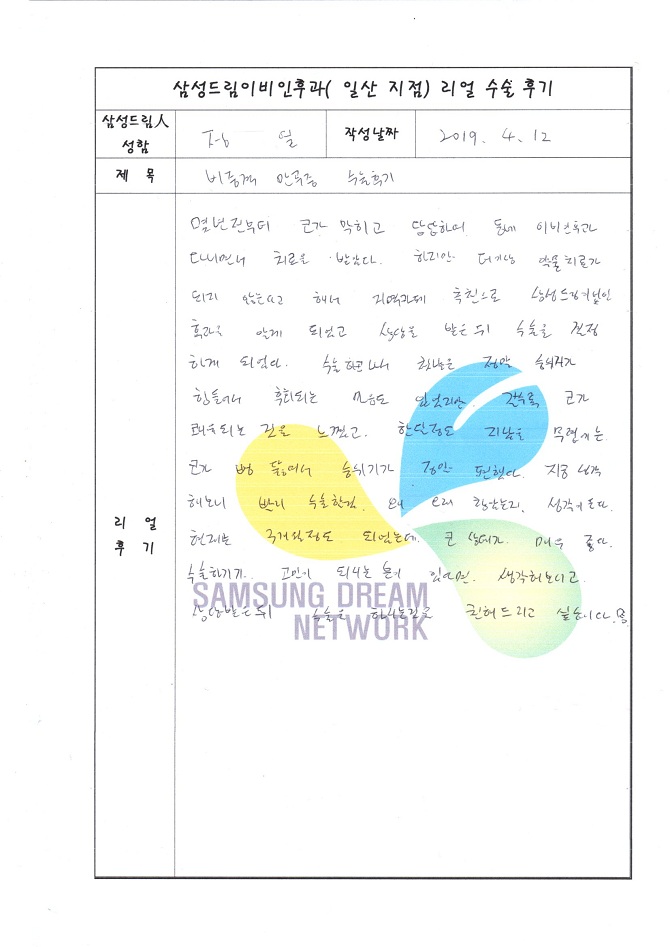 삼성드림이비인후과( 일산 지점) 리얼 수술 후기
삼성드림人 성함
일
작성날짜
2019. 4. 12
제 목
비중격 만곡증 수술후기
리 얼
후 기
몇년전부터 코가 막히고 답답하여 동네 이비인후과
다니면서 치료를 받았다. 하지만 더이상 약물치료가
되지 않는다고 해서 추천으로 삼성드림이비인
후과를 알게 되었고 상담을 받은뒤 수술을 결정
하게 되었다. 수술 하면서 정말 숨쉬기가
힘들어서 후회되는 마음도 있었지만. 갈수록 코가
회복되는 것을 느꼈고. 한달정도 지났을 무렵에는
코가 뻥 뚫려서 숨쉬기가 정말 편했다. 지금 생각
해보니 수술한걸. 생각이 든다.
현재는 3개월정도 되었는데. 코 상태가. 매우 좋다.
수술하기가.. 고민이 되시는 분이 있다면. 생각해보시고.
상담받은뒤 수술을 하시는걸로 권해드리고 싶습니다.
SAMSUNG DREAM
NETWORK